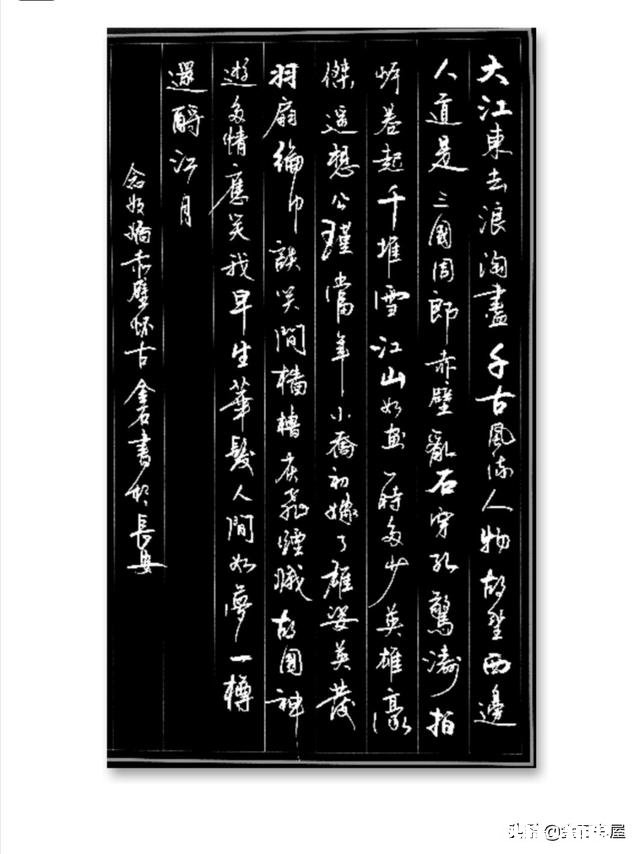 大江東去浪淘盡千古風流人物故壘西邊
人道是三國周郎赤壁亂石穿孔驚濤拍
岸卷起千堆雪江山如畫一時多少英雄豪
傑遥想公瑾當年小喬初嫁了雄姿英發
羽扇綸巾談笑間檣櫓灰飛煙滅故國神
遊多情應笑我早生華髮人間如夢一樽
還酹江月
念奴嬌赤壁怀古金石書於長安
头条 @金石书屋